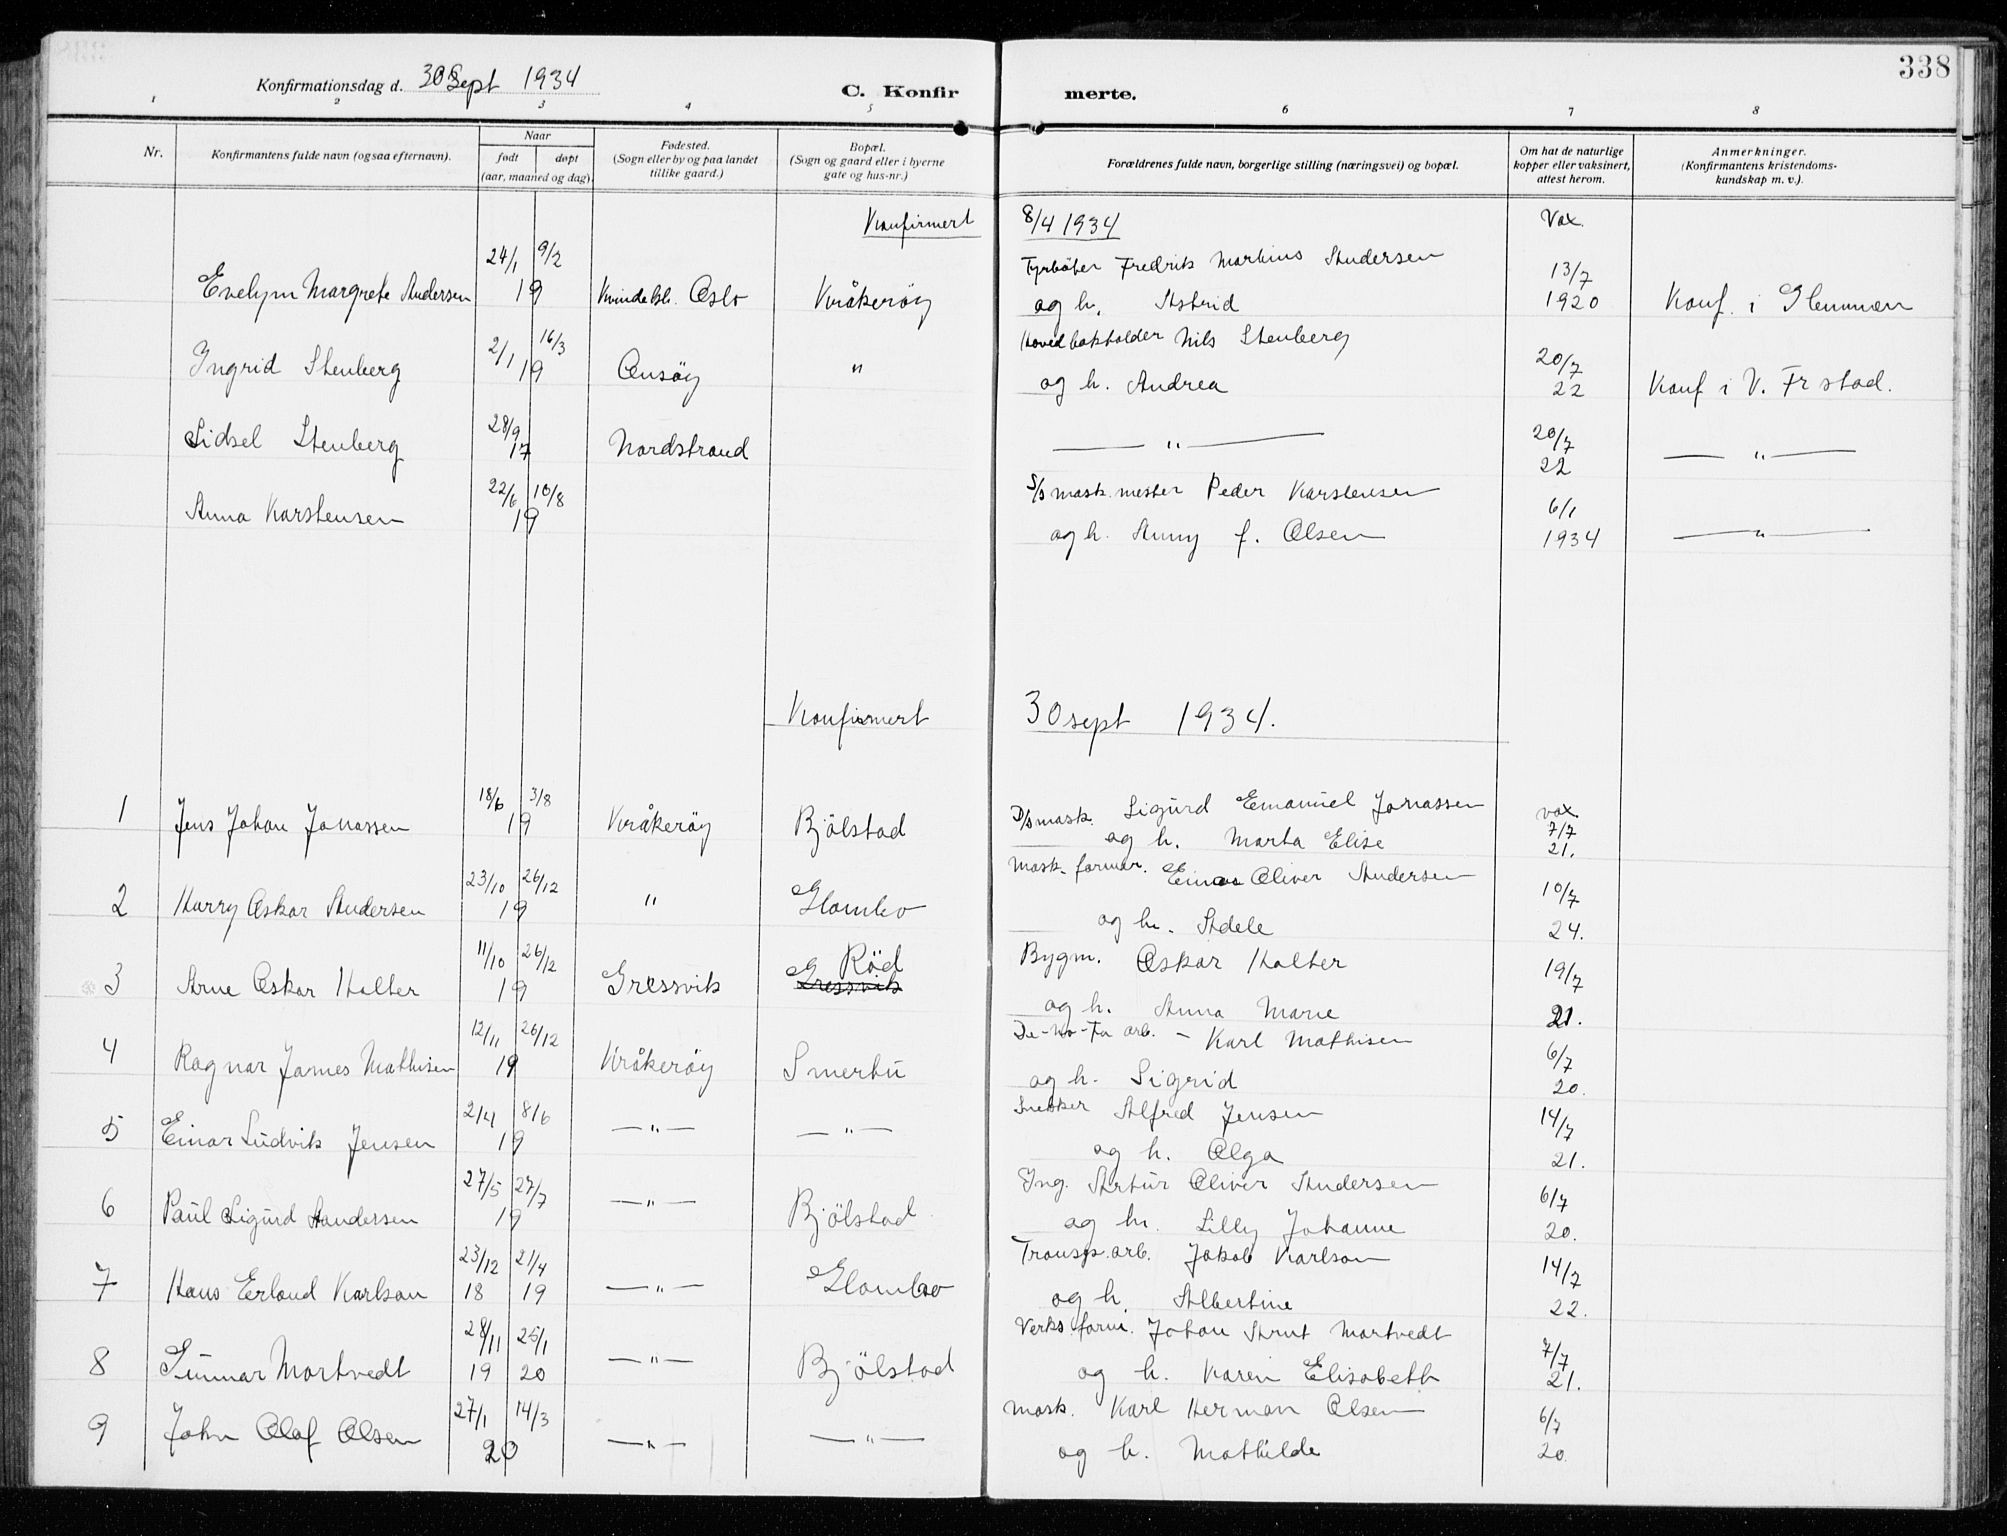 338
Konfirmationsdag d. 30 Sept 1934
C. Konfir merte.
1 2 3 4 5 6 7 8
Nr.
Konfirmantens fulde navn (ogsaa efternavn).
Naar
født døpt
(aar, maaned og dag).
Fødested.
(Sogn eller by og paa landet
tillike gaard.)
Bopæl.
(Sogn og gaard eller i byerne
gate og hus-nr.)
Forældrenes fulde navn, borgerlige stilling (næringsvei) og bopæl.
Om hat de naturlige
kopper eller vaksinert,
attest herom.
Anmerkninger.
(Konfirmantens kristendoms-
kundskap m. v.).
Konfirmert 8/4 1934 Vax.
24/1 9/2 Fyrbøter Fredrik Martins Andersen 13/7
Evelyn Margrete Andersen 19 Kvindekl. Oslo Kråkerøy og h. Astrid 1920 Konf. i Glemmen
2/1 16/3 Hovedbokholder Nils Stenberg 20/7
Ingrid Stenberg 19 Onsøy " og h. Andrea 22 Konf i V. Frstad.
28/9 20/7
Sidsel Stenberg 17 Nordstrand — " — 22 — " —
22/6 10/8 D/s mask. mester Peder Karstensen 6/1
Anna Karstensen 19 og h. Anny f. Olsen 1934 — " —
Konfirmert 30 sept 1934.
18/6 3/8 D/s mask. Sigurd Emanuel Jonassen vax 7/7
1 Jens Johan Jonassen 19 Kråkerøy Bjölstad og h. Marta Elise 21.
23/10 26/12 Mask. formar. Einar Oliver Andersen 10/7
2 Harry Oskar Andersen 19 " Glombo og h. Adele 24.
11/10 26/12 Rød Bygm. Oskar Halter 19/7
3 Arne Oskar Halter 19 Gressvik Gressvik og h. Anna Marie 21.
12/11 26/12 De-No-Fa arb. - Karl Mathisen 6/7
4 Ragnar James Mathisen 19 Kråkerøy Smertu og h. Sigrid 20.
2/4 8/6 Snekker Alfred Jensen 14/7
5 Einar Ludvik Jensen 19 — " — — " — og h. Olga 21.
27/5 27/7 Ing. Artur Oliver Andersen 6/7
6 Paul Sigurd Andersen 19 — " — Bjölstad og h. Lilly Johanne 20.
23/12 21/4 Transp. arb. Jakob Karlson 14/7
7 Hans Erland Karlson 18 19 — " — Glombo og h. Albertine 22.
28/11 25/1 Verks. form. Johan Arnt Mortvedt 7/7
8 Gunnar Mortvedt 19 20 — " — Bjölstad og h. Karen Elisabeth 21.
27/1 14/3 Mask. Karl Herman Olsen 6/7
9 John Olaf Olsen 20 — " — — " — og h. Mathilde 20.